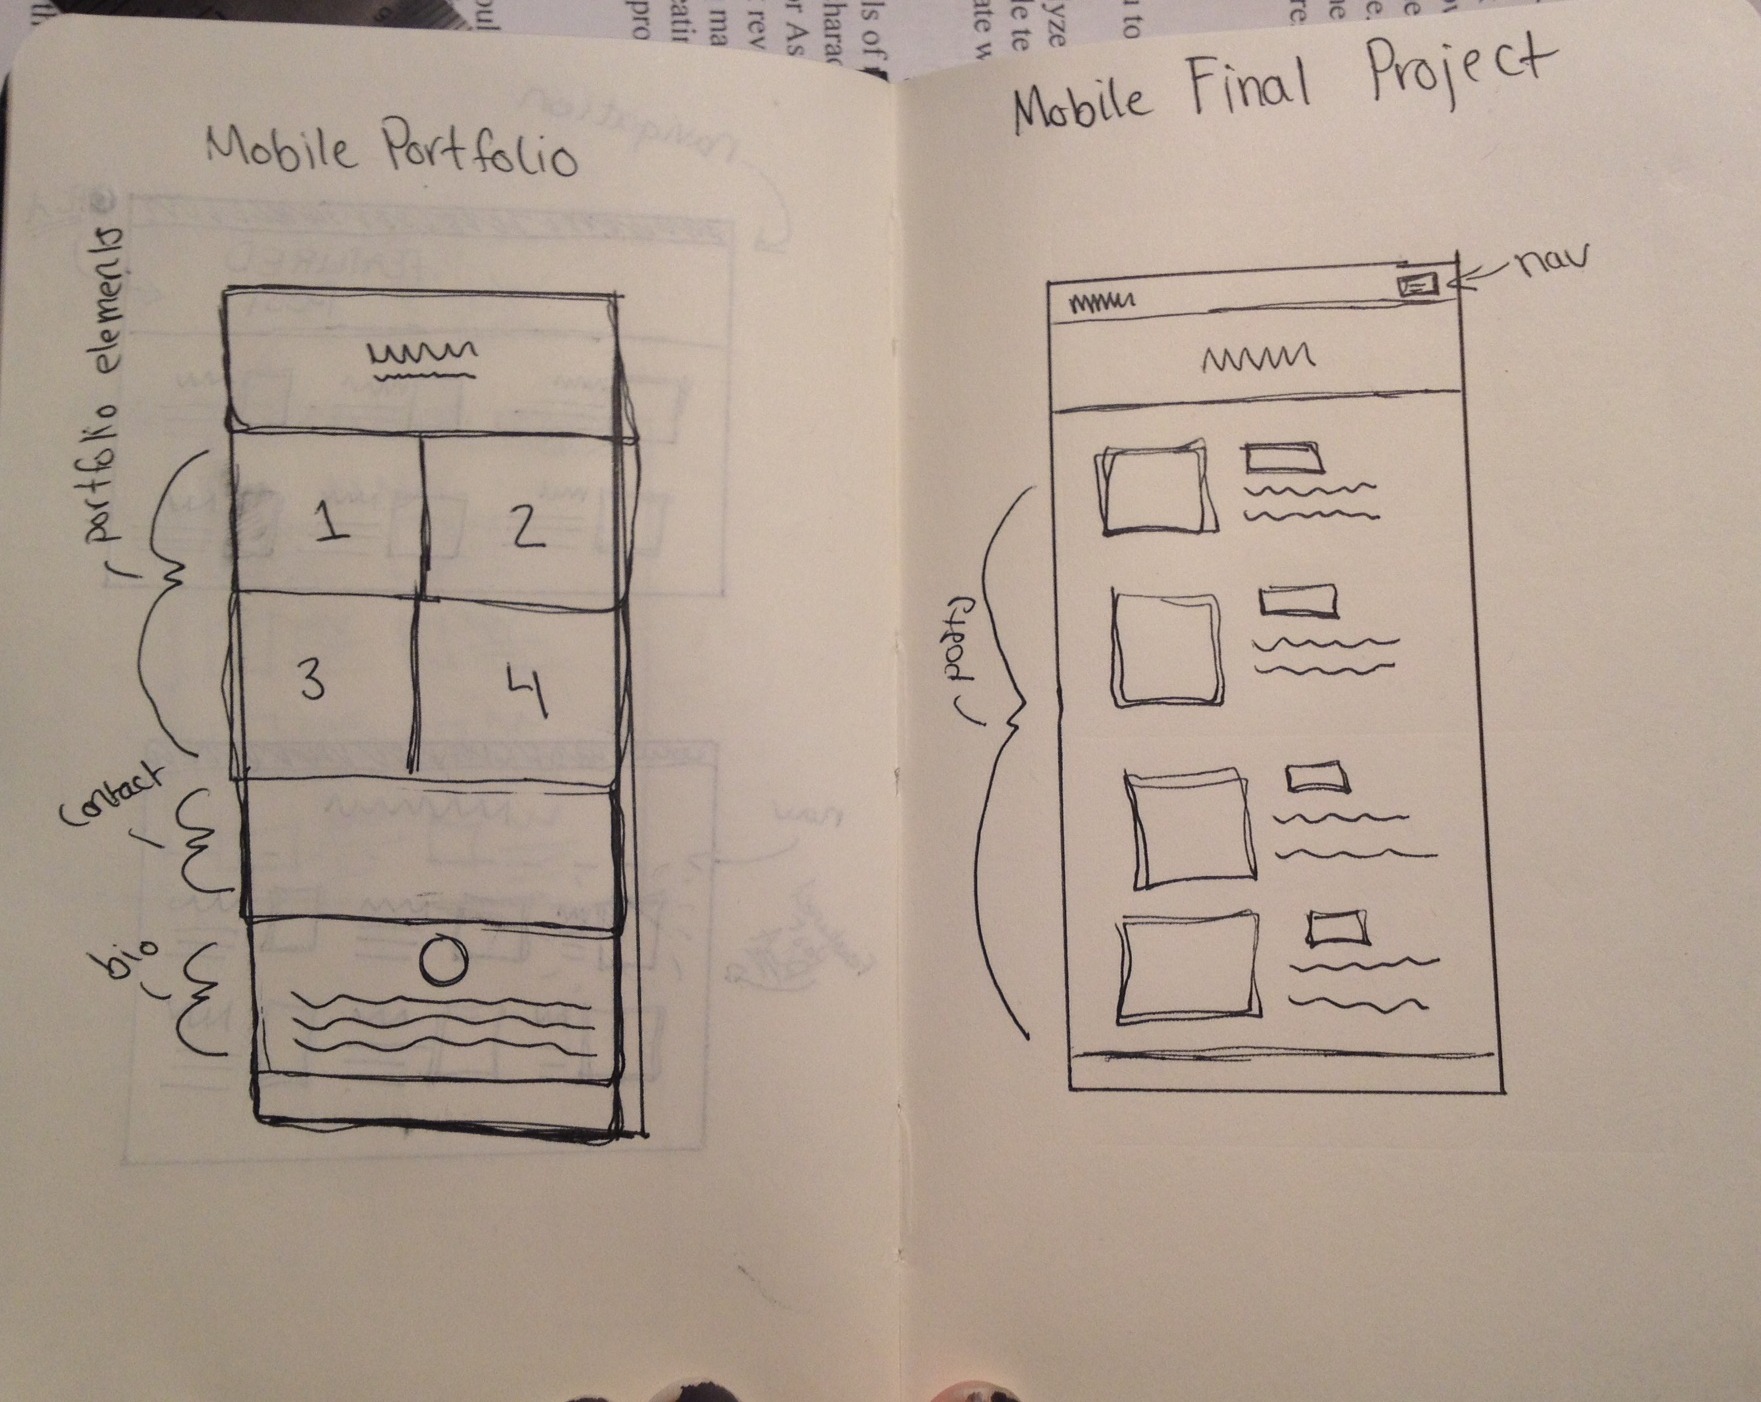 Mobile Portfolio
portfolio elements
1
2
3
4
Contact
bio
Mobile Final Project
nav
posts